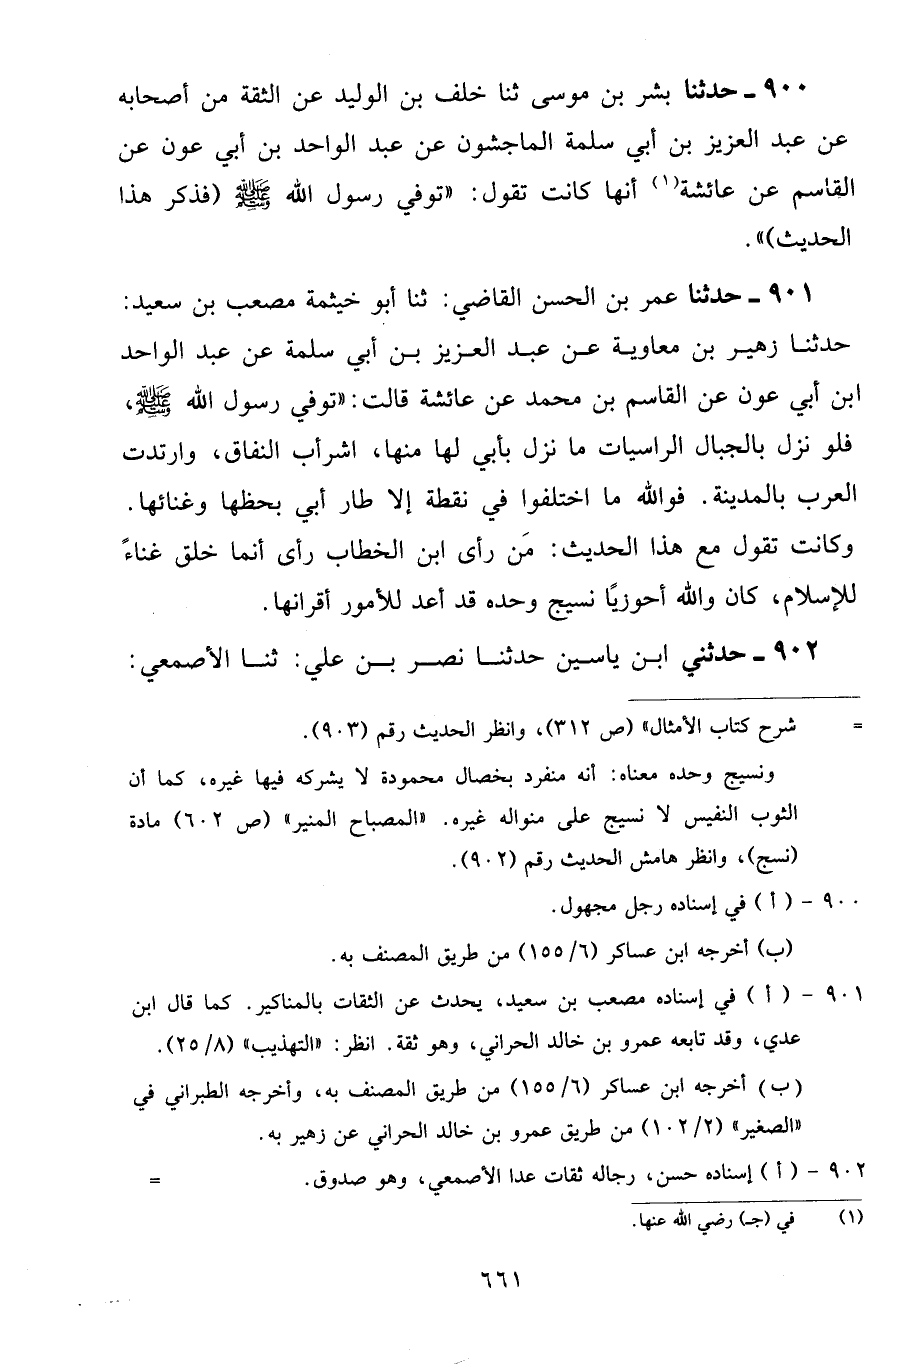 ٩٠٠ ـ حدثنا بشر بن موسى ثنا خلف بن الوليد عن الثقة من أصحابه
عن عبد العزيز بن أبي سلمة الماجشون عن عبد الواحد بن أبي عون عن
القاسم عن عائشة(١) أنها كانت تقول: «توفي رسول الله ﷺ (فذكر هذا
الحديث)».
٩٠١ ـ حدثنا عمر بن الحسن القاضي: ثنا أبو خيثمة مصعب بن سعيد:
حدثنا زهير بن معاوية عن عبد العزيز بن أبي سلمة عن عبد الواحد
ابن أبي عون عن القاسم بن محمد عن عائشة قالت: «توفي رسول الله ﷺ،
فلو نزل بالجبال الراسيات ما نزل بأبي لها منها، اشرأب النفاق، وارتدت
العرب بالمدينة. فوالله ما اختلفوا في نقطة إلا طار أبي بحظها وغنائها.
وكانت تقول مع هذا الحديث: مَن رأى ابن الخطاب رأى أنما خلق غناءً
للإسلام، كان والله أحوزيًا نسيج وحده قد أعد للأمور أقرانها.
٩٠٢ ـ حدثني ابن ياسين حدثنا نصر بن علي: ثنا الأصمعي:
= شرح كتاب الأمثال» (ص ٣١٢)، وانظر الحديث رقم (٩٠٣).
ونسيج وحده معناه: أنه منفرد بخصال محمودة لا يشركه فيها غيره، كما أن
الثوب النفيس لا نسيج على منواله غيره. «المصباح المنير» (ص ٦٠٢) مادة
(نسج)، وانظر هامش الحديث رقم (٩٠٢).
٩٠٠ - ( أ ) في إسناده رجل مجهول.
(ب) أخرجه ابن عساكر (١٥٥/٦) من طريق المصنف به.
٩٠١ - ( أ ) في إسناده مصعب بن سعيد، يحدث عن الثقات بالمناكير. كما قال ابن
عدي، وقد تابعه عمرو بن خالد الحراني، وهو ثقة. انظر: «التهذيب» (٢٥/٨).
(ب) أخرجه ابن عساكر (١٥٥/٦) من طريق المصنف به، وأخرجه الطبراني في
«الصغير» (١٠٢/٢) من طريق عمرو بن خالد الحراني عن زهير به.
٩٠٢ - ( أ ) إسناده حسن، رجاله ثقات عدا الأصمعي، وهو صدوق. =
(١) في (جـ) رضي الله عنها.
٦٦١